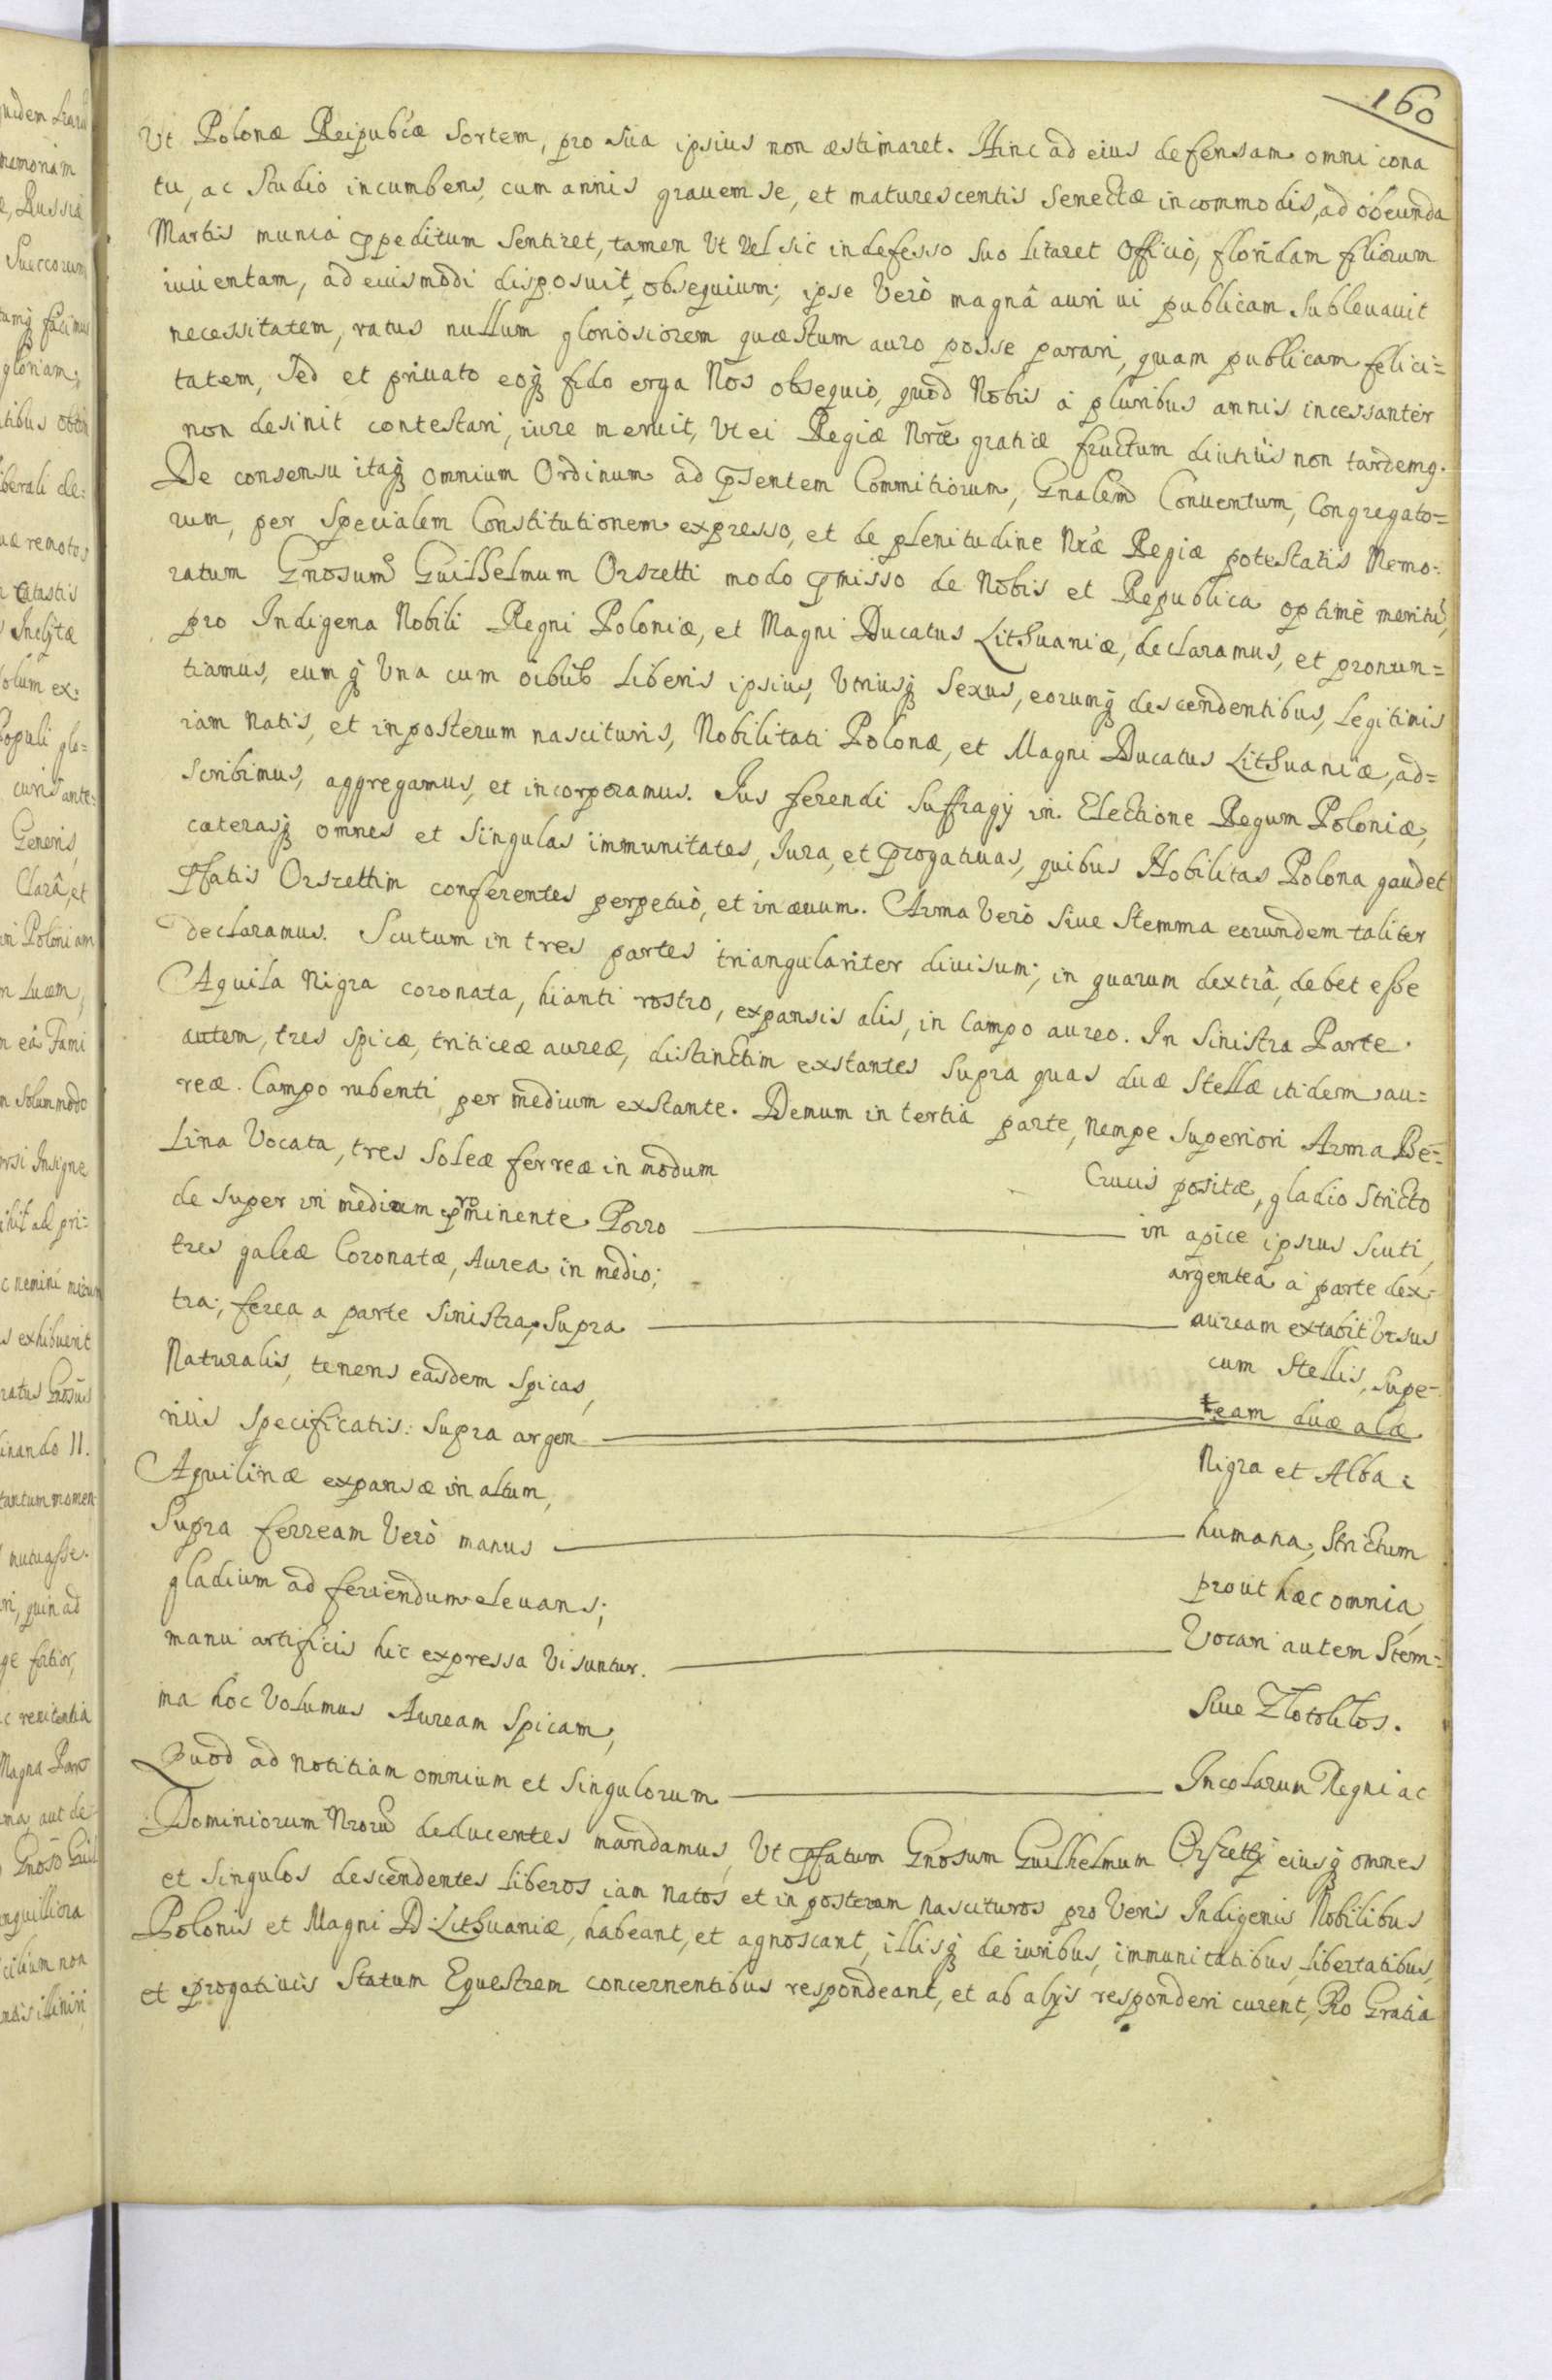 160
Ut Polonæ Reipub'cæ Sortem, pro sua ipsius non æstimaret. Hinc ad eius defensam omni cona
tu, ac Studio incumbens, cum annis grauem se, et maturescentis Senectæ incommodis, ad obeunda
Martis munia ꝑpeditum Sentiret, tamen Ut Vel sic indefesso suo litaret Officio, floridam filiorum
iuuentam, ad eiusmodi disposuit, obsequium; ipse Verò magnâ auri ui publicam Subleuauit
necessitatem, ratus nullum gloriosiorem quæstum auro posse parari, quam publicam felici=
tatem, Sed et priuato eoq₃ fido erga Nos obsequio, quod Nobis à pluribus annis incessantèr
non desinit contestari, iure meruit, Ut ei Regiæ Nræ gratiæ fructum diutius non tardemq.
De consensu itaq₃ omnium Ordinum ad ꝑsentem Commitiorum, Gnalem Conuentum, Congregato=
rum, per Specialem Constitutionem expresso, et de plenitudine Nræ Regiæ potestatis Memo=
ratum Gnosum Guilhelmum Orszetti modo ꝑmisso de Nobis et Republica optimè meritũ,
pro Indigena Nobili Regni Poloniæ, et Magni Ducatus Lithuaniæ, declaramus, et pronun=
tiamus, eumq₃ Una cum oibus Liberis ipsius, Utriusq₃ Sexus, eorumq₃ descendentibus, Legitimis
iam Natis, et inposterum nascituris, Nobilitati Polonæ, et Magni Ducatus Lithuaniæ, ad=
scribimus, aggregamus, et incorporamus. Jus ferendi Suffragij in Electione Regum Poloniæ,
cæterasq₃ omnes et Singulas immunitates, Jura, et ꝑrogatiuas, quibus Nobilitas Polona gaudet
ꝑfatis Orszettim conferentes perpetuò, et in æuum. Arma Verò Siue Stemma eorundem taliter
declaramus. Scutum in tres partes triangulariter diuisum; in quarum dextrâ, debet esse
Aquila Nigra coronata, hianti rostro, expansis alis, in Campo aureo. In Sinistra Parte
autem, tres Spicæ, triticeæ aureæ, distinctim exstantes Supra quas duæ Stellæ itidem au=
reæ. Campo rubenti per medium exstante. Demum in tertia parte, nempe Superiori Arma Be=
Lina Vocata, tres Soleæ ferreæ in modum Crucis positæ, gladio Stricto
de super in medium prominente. Porro in apice ipsius Scuti,
tres galeæ Coronatæ, Aurea in medio; argentea à parte dex=
tra; ferea a parte Sinistra, Supra auream extabit Ursus
Naturalis, tenens easdem Spicas, cum Stellis, Supe=
rius Specificatis: Supra argen team duæ alæ
Aquilinæ expansæ in altum, Nigra et Alba:
Supra ferream Verò manus humana, Strictum
gladium ad feriendum eleuans; prout hæc omnia,
manu artificis hic expressa Visuntur. Vocari autem Stem=
ma hoc Volumus Auream Spicam, Siue Zlotoklos.
Quod ad Notitiam omnium et Singulorum Incolarum Regni ac
Dominiorum Nrorũ deducentes mandamus, Ut ꝑfatum Gnosum Guilhelmum Orszetti eiusq₃ omnes
et Singulos descendentes Liberos iam natos et in posterum nascituros pro Veris Indigenis Nobilibus
Polonis et Magni D. Lithuaniæ, habeant, et agnoscant, illisq₃ de iuribus, immunitatibus, Libertatibus,
et ꝑrogatiuis Statum Equestrem concernentibus respondeant, et ab alijs responderi curent, Pro Gratia